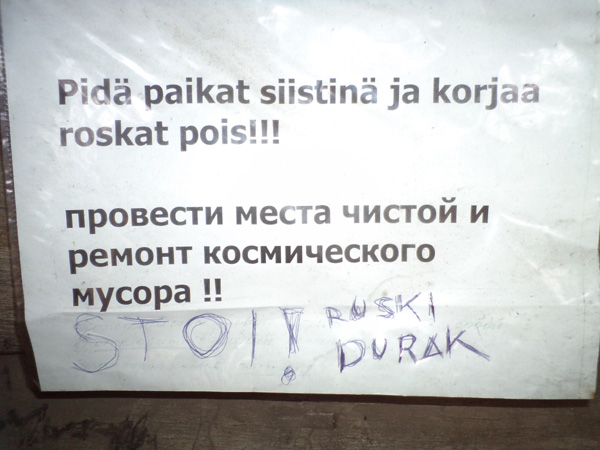 Pidä paikat siistinä ja korjaa
roskat pois!!!
провести места чистой и
ремонт космического
мусора !!
STOI! RUSKI
DURAK